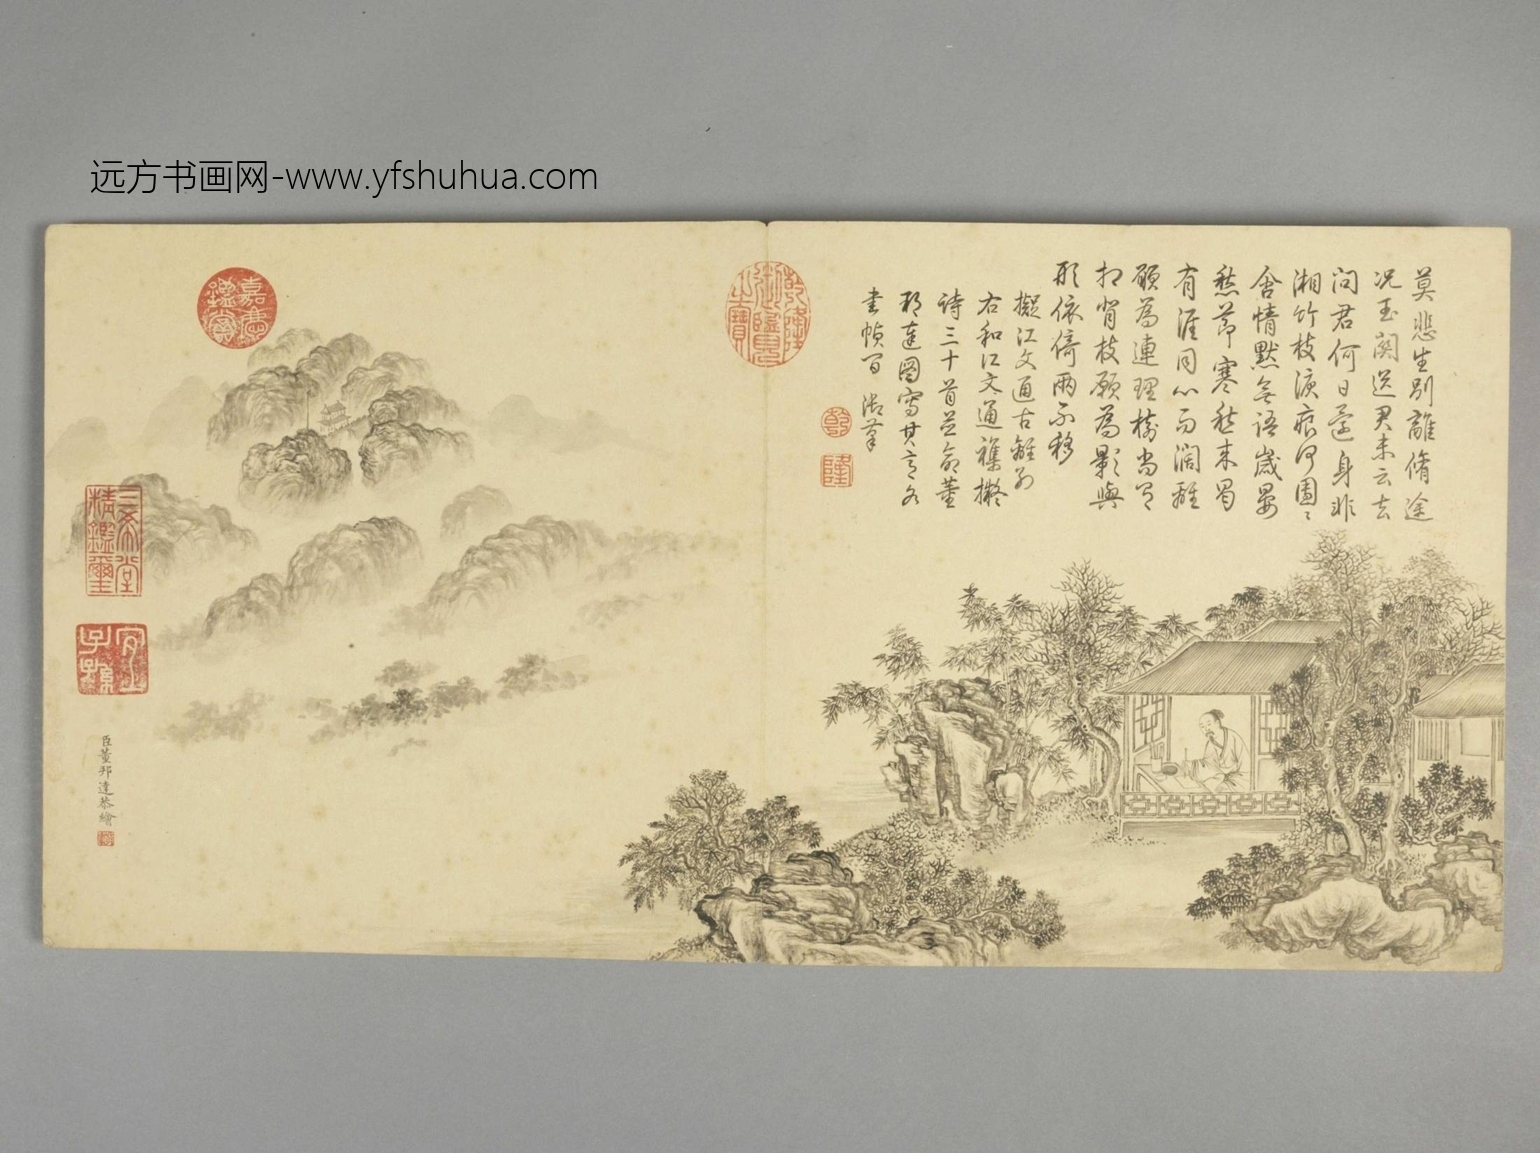 远方书画网-www.yfshuhua.com
莫悲生別離脩途
况玉関送君未云去
問君何日還身非
湘竹枝淚痕何團〻
含情默無語歲晏
愁節寒愁来思
有涯同心而濶離
願為連理樹當有
相背枝願為影與
形依倚兩不移
擬江文通古離別
右和江文通襍擬
詩三十首並命董
邦達圖寫其意各
書幀首 御筆
乾隆御覽之寶
乾
隆
嘉慶鑑賞
三希堂精鑑璽
宜子孫
臣董邦達恭繪